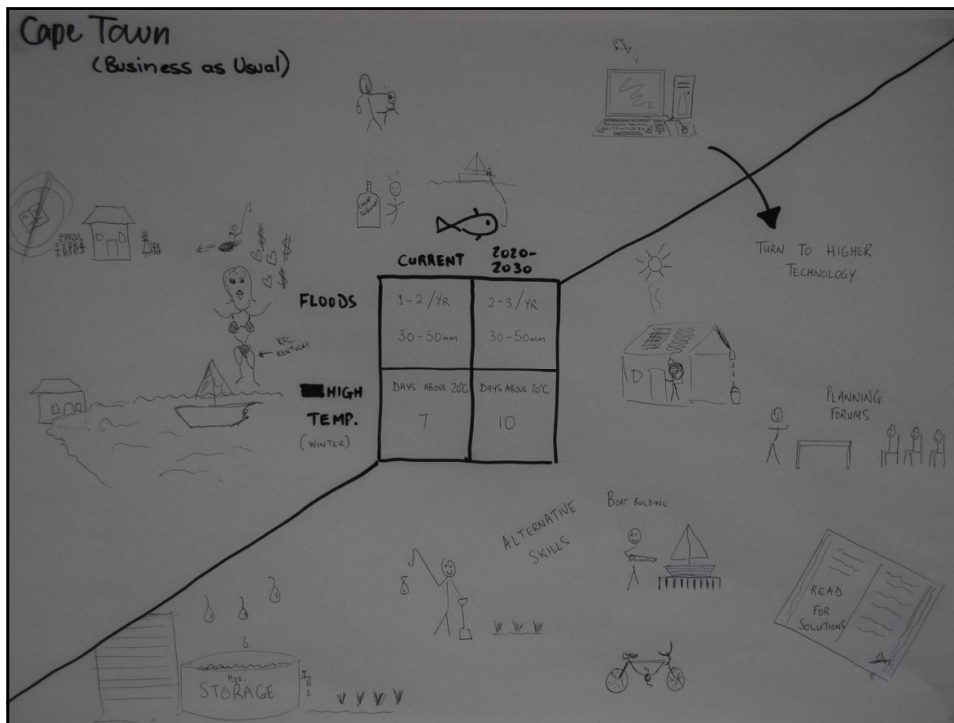 Cape Town
(Business as Usual)
CURRENT
2020-
2030
FLOODS
1-2/YR
2-3/YR
30-50mm
30-50mm
HIGH
TEMP.
(WINTER)
DAYS ABOVE 20°C
DAYS ABOVE 20°C
7
10
KFC
KENTUCKY
TURN TO HIGHER
TECHNOLOGY.
PLANNING
FORUMS
ALTERNATIVE
SKILLS
BOAT BUILDING
READ
FOR
SOLUTIONS
H2O
STORAGE